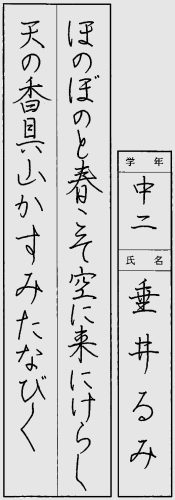 ほのぼのと春こそ空に来にけらし
天の香具山かすみたなびく
学年
中二
氏名
垂井るみ